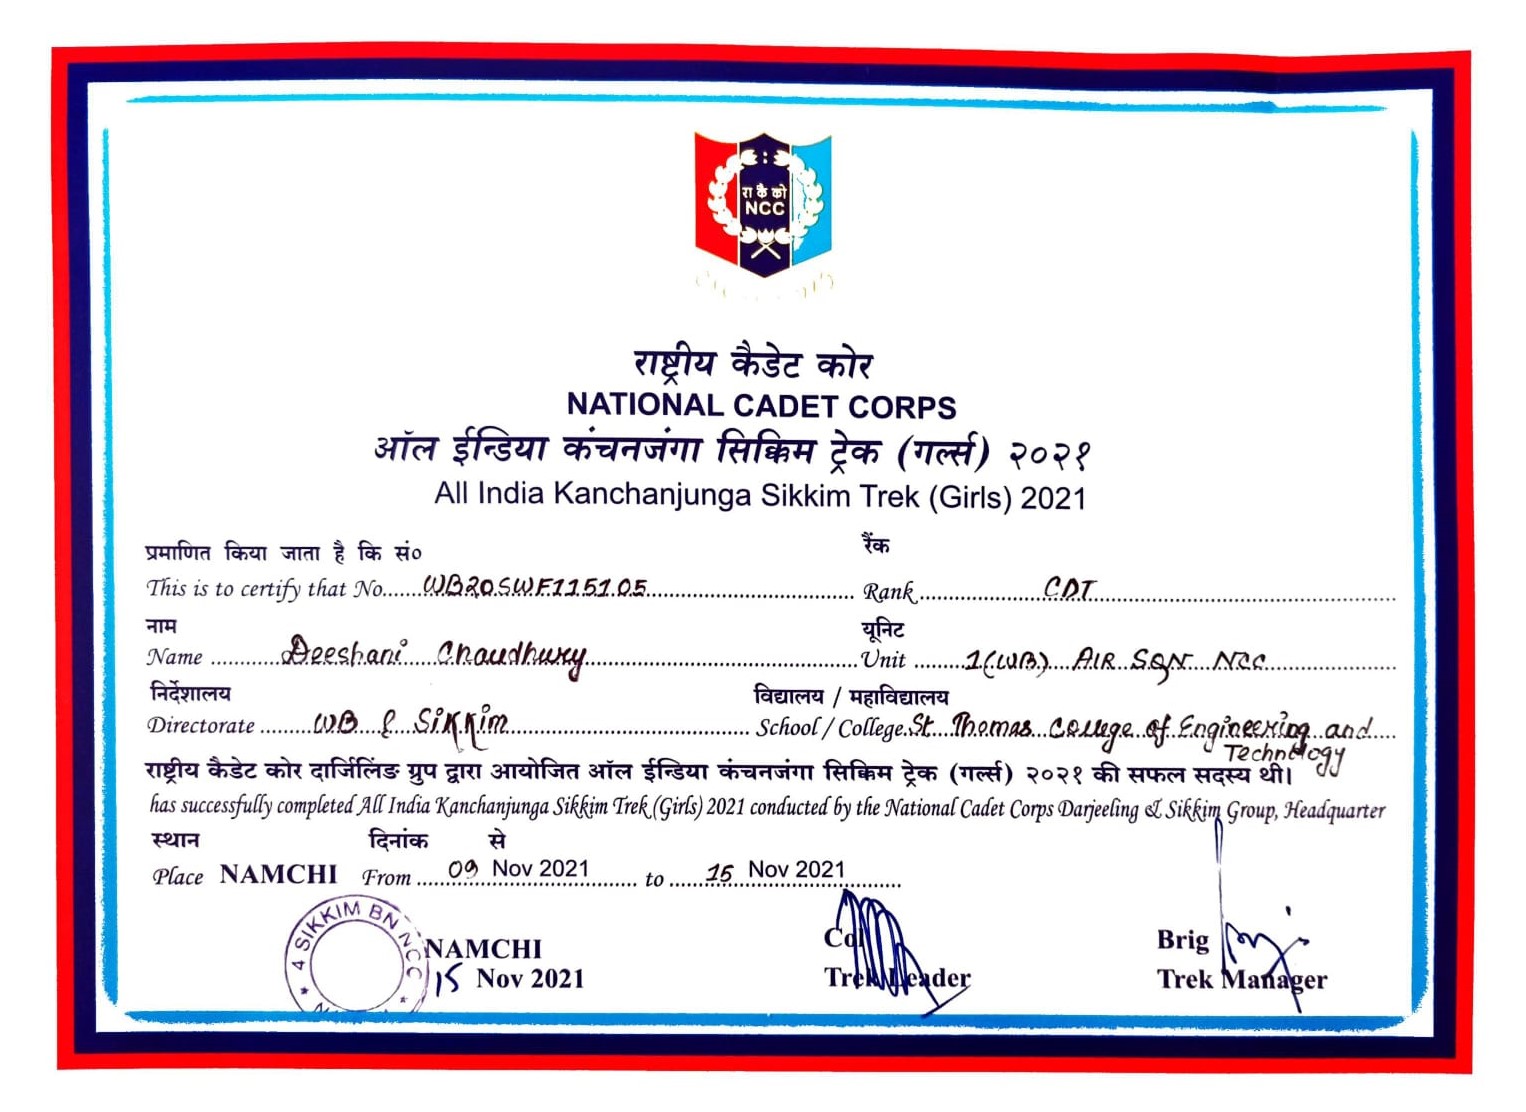 रा कै को
NCC
राष्ट्रीय कैडेट कोर
NATIONAL CADET CORPS
ऑल ईन्डिया कंचनजंगा सिक्किम ट्रेक (गर्ल्स) २०२१
All India Kanchanjunga Sikkim Trek (Girls) 2021
प्रमाणित किया जाता है कि सं० रैंक
This is to certify that No......WB20SWF115105............ Rank............CDT............
नाम यूनिट
Name ............Deeshani Chaudhury............ Unit ........1(WB) AIR SQN NCC............
निर्देशालय विद्यालय / महाविद्यालय
Directorate ........WB & Sikkim............ School / College.St. Thomas College of Engineering and....
Technology
राष्ट्रीय कैडेट कोर दार्जिलिंङ ग्रुप द्वारा आयोजित ऑल ईन्डिया कंचनजंगा सिक्किम ट्रेक (गर्ल्स) २०२१ की सफल सदस्य थी।
has successfully completed All India Kanchanjunga Sikkim Trek (Girls) 2021 conducted by the National Cadet Corps Darjeeling & Sikkim Group, Headquarter
स्थान दिनांक से
Place NAMCHI From ....09 Nov 2021........ to .....15 Nov 2021........
* 4 SIKKIM BN NCC *
NAMCHI
15 Nov 2021
Col
Trek Leader
Brig
Trek Manager